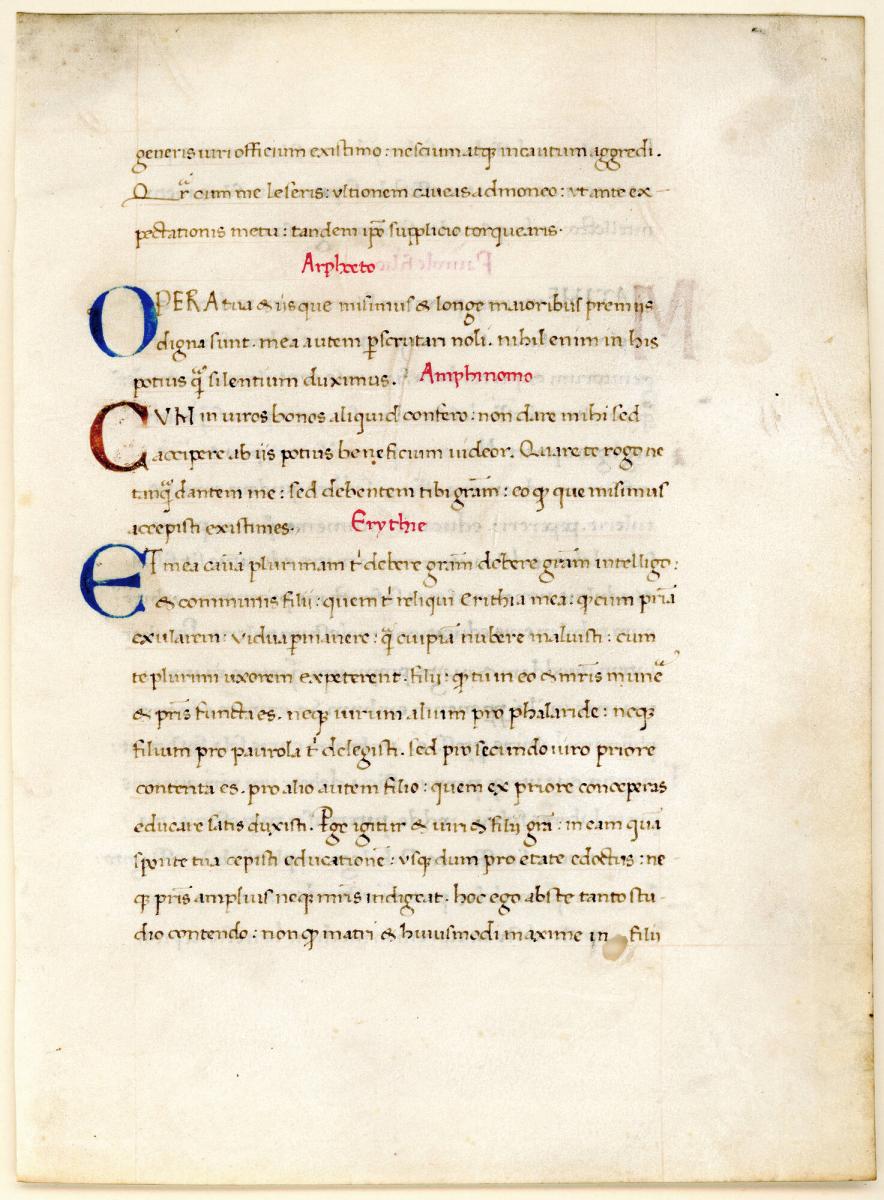 generis uiri officium existimo : nescium atq; incautum aggredi .
Qr cum me leseris : ultionem caueas admoneo : ut ante ex
pectationis metu : tandem ipo supplicio torquearis ·
Arpheto
OPERA tua & iis que misimus & longe maioribus premiis
digna sunt . mea autem pscrutari noli . nihil enim in his
potius q̃ silentium duximus .
Amphinomo
CVM in uiros bonos aliquid confero : non dare mihi sed
accipere ab iis potius beneficium uideor . Quare te rogo ne
tanq̃ dantem me : sed debentem tibi gram̄ : eo q; que misimus
accepisti existimes .
Erythie
ET mea cauā plurimam t' debere gram̄ debere gram̄ intelligo :
& communis filii : quem t' reliqui Erithia mea : q; cum priā
exularem : vidua pmanere : q̃ cuipiā nubere maluisti : cum
te plurimi uxorem expeterent . filii : q; tu in eo & mr̄is munē
& pr̄is functa es . neq; uirum alium pro phalaride : neq;
filium pro paurola t' delegisti . sed pro secundo uiro priore
contenta es . pro alio autem filio : quem ex priore conceperas
educare satis duxisti . Pge igitur & uiri & filii grā : in eam quā
sponte tua cepisti educationē : usq; dum pro etate edoctus : ne
q; pr̄is amplius neq; mr̄is indigeat . hoc ego abs te tanto stu
dio contendo : non q; matri & huiusmodi maxime in filii